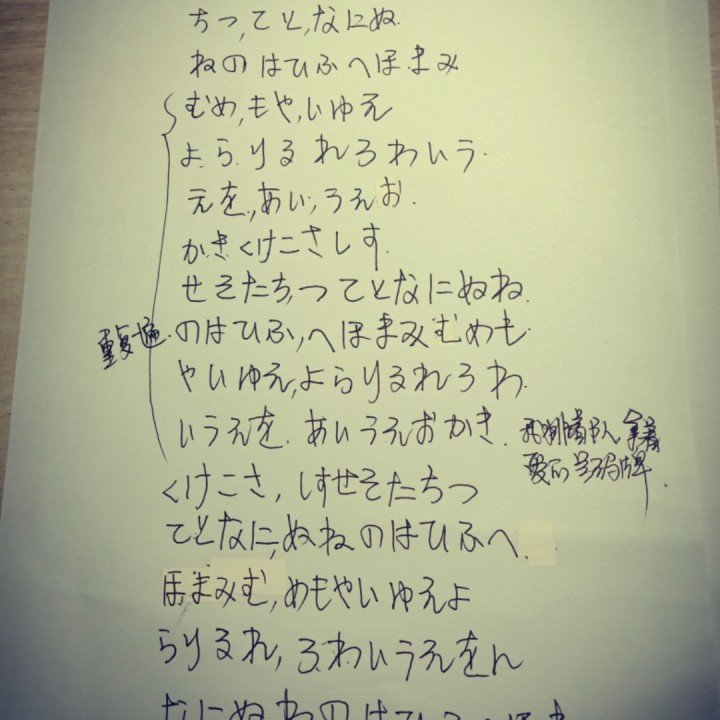 ちつ,てと,なにぬ.
ねのはひふへほまみ
むめ,もや,いゆえ
よらりるれろわいう.
えを,あい,うえお.
かきくけこさしす.
せそたち,つてとなにぬね.
重复遍.のはひふ,へほまみむめも.
やいゆえ,よらりるれろわ.
いうえを.あいうえおかき.
爱的号码牌.
くけこさ,しすせそたちつ
てとなに,ぬねのはひふへ.
ほまみむ,めもやいゆえよ
らりるれ,ろわいうえをん
なにぬねのはひふへほま